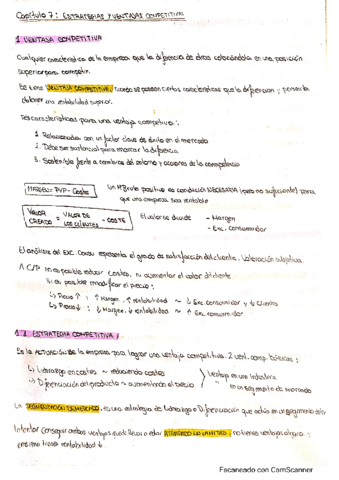 Capítulo 7: ESTRATEGIAS Y VENTAJAS COMPETITIVAS
1. VENTAJA COMPETITIVA
Cualquier característica de la empresa que la diferencia de otras colocándola en una posición
superior para competir.
Se tiene VENTAJA COMPETITIVA, cuando se poseen ciertas características que la diferencian y permiten
obtener una rentabilidad superior.
Tres características para una ventaja competitiva:
1. Relacionadas con un factor clave de éxito en el mercado
2. Debe ser sustancial para marcar la diferencia
3. Sostenible frente a cambios del entorno y acciones de la competencia
MARGEN = PVP - Costes
Un Mg bruto positivo es condición NECESARIA (pero no suficiente) para
que una empresa sea rentable
VALOR CREADO = VALOR DE LOS CLIENTES - COSTE
El valor se divide
- Margen
- Exc. Consumidor
El análisis del Exc. Consu representa el grado de satisfacción del cliente. Valoración subjetiva.
Λ C/P no es posible reducir costes, ni aumentar el valor del cliente
Si es posible modificar el precio:
↳ Precio ↑ : ↑ Margen, ↑ Rentabilidad ~ ↓ Exc. Consumidor y ↓ Clientes
↳ Precio ↓ : ↓ Margen, ↓ rentabilidad ~ ↑ Exc. consumidor.
1.1 ESTRATEGIA COMPETITIVA
Es la ACTUACIÓN de la empresa para lograr una ventaja competitiva. 2 vent. comp. básicas:
↳ Liderazgo en costes ~ reduciendo costes
↳ Diferenciación del producto ~ aumentando el precio
Ventaja en una Industria
" en un segmento de mercado
La SEGMENTACIÓN DE MERCADO, es una estrategia de Liderazgo o Diferenciación que actúa en un segmento
Intentar conseguir ambas ventajas puede llevar a estar ATRAPADO EN LA MITAD, no tienes ventaja alguna y
rentabilidad ↓
Escaneado con CamScanner